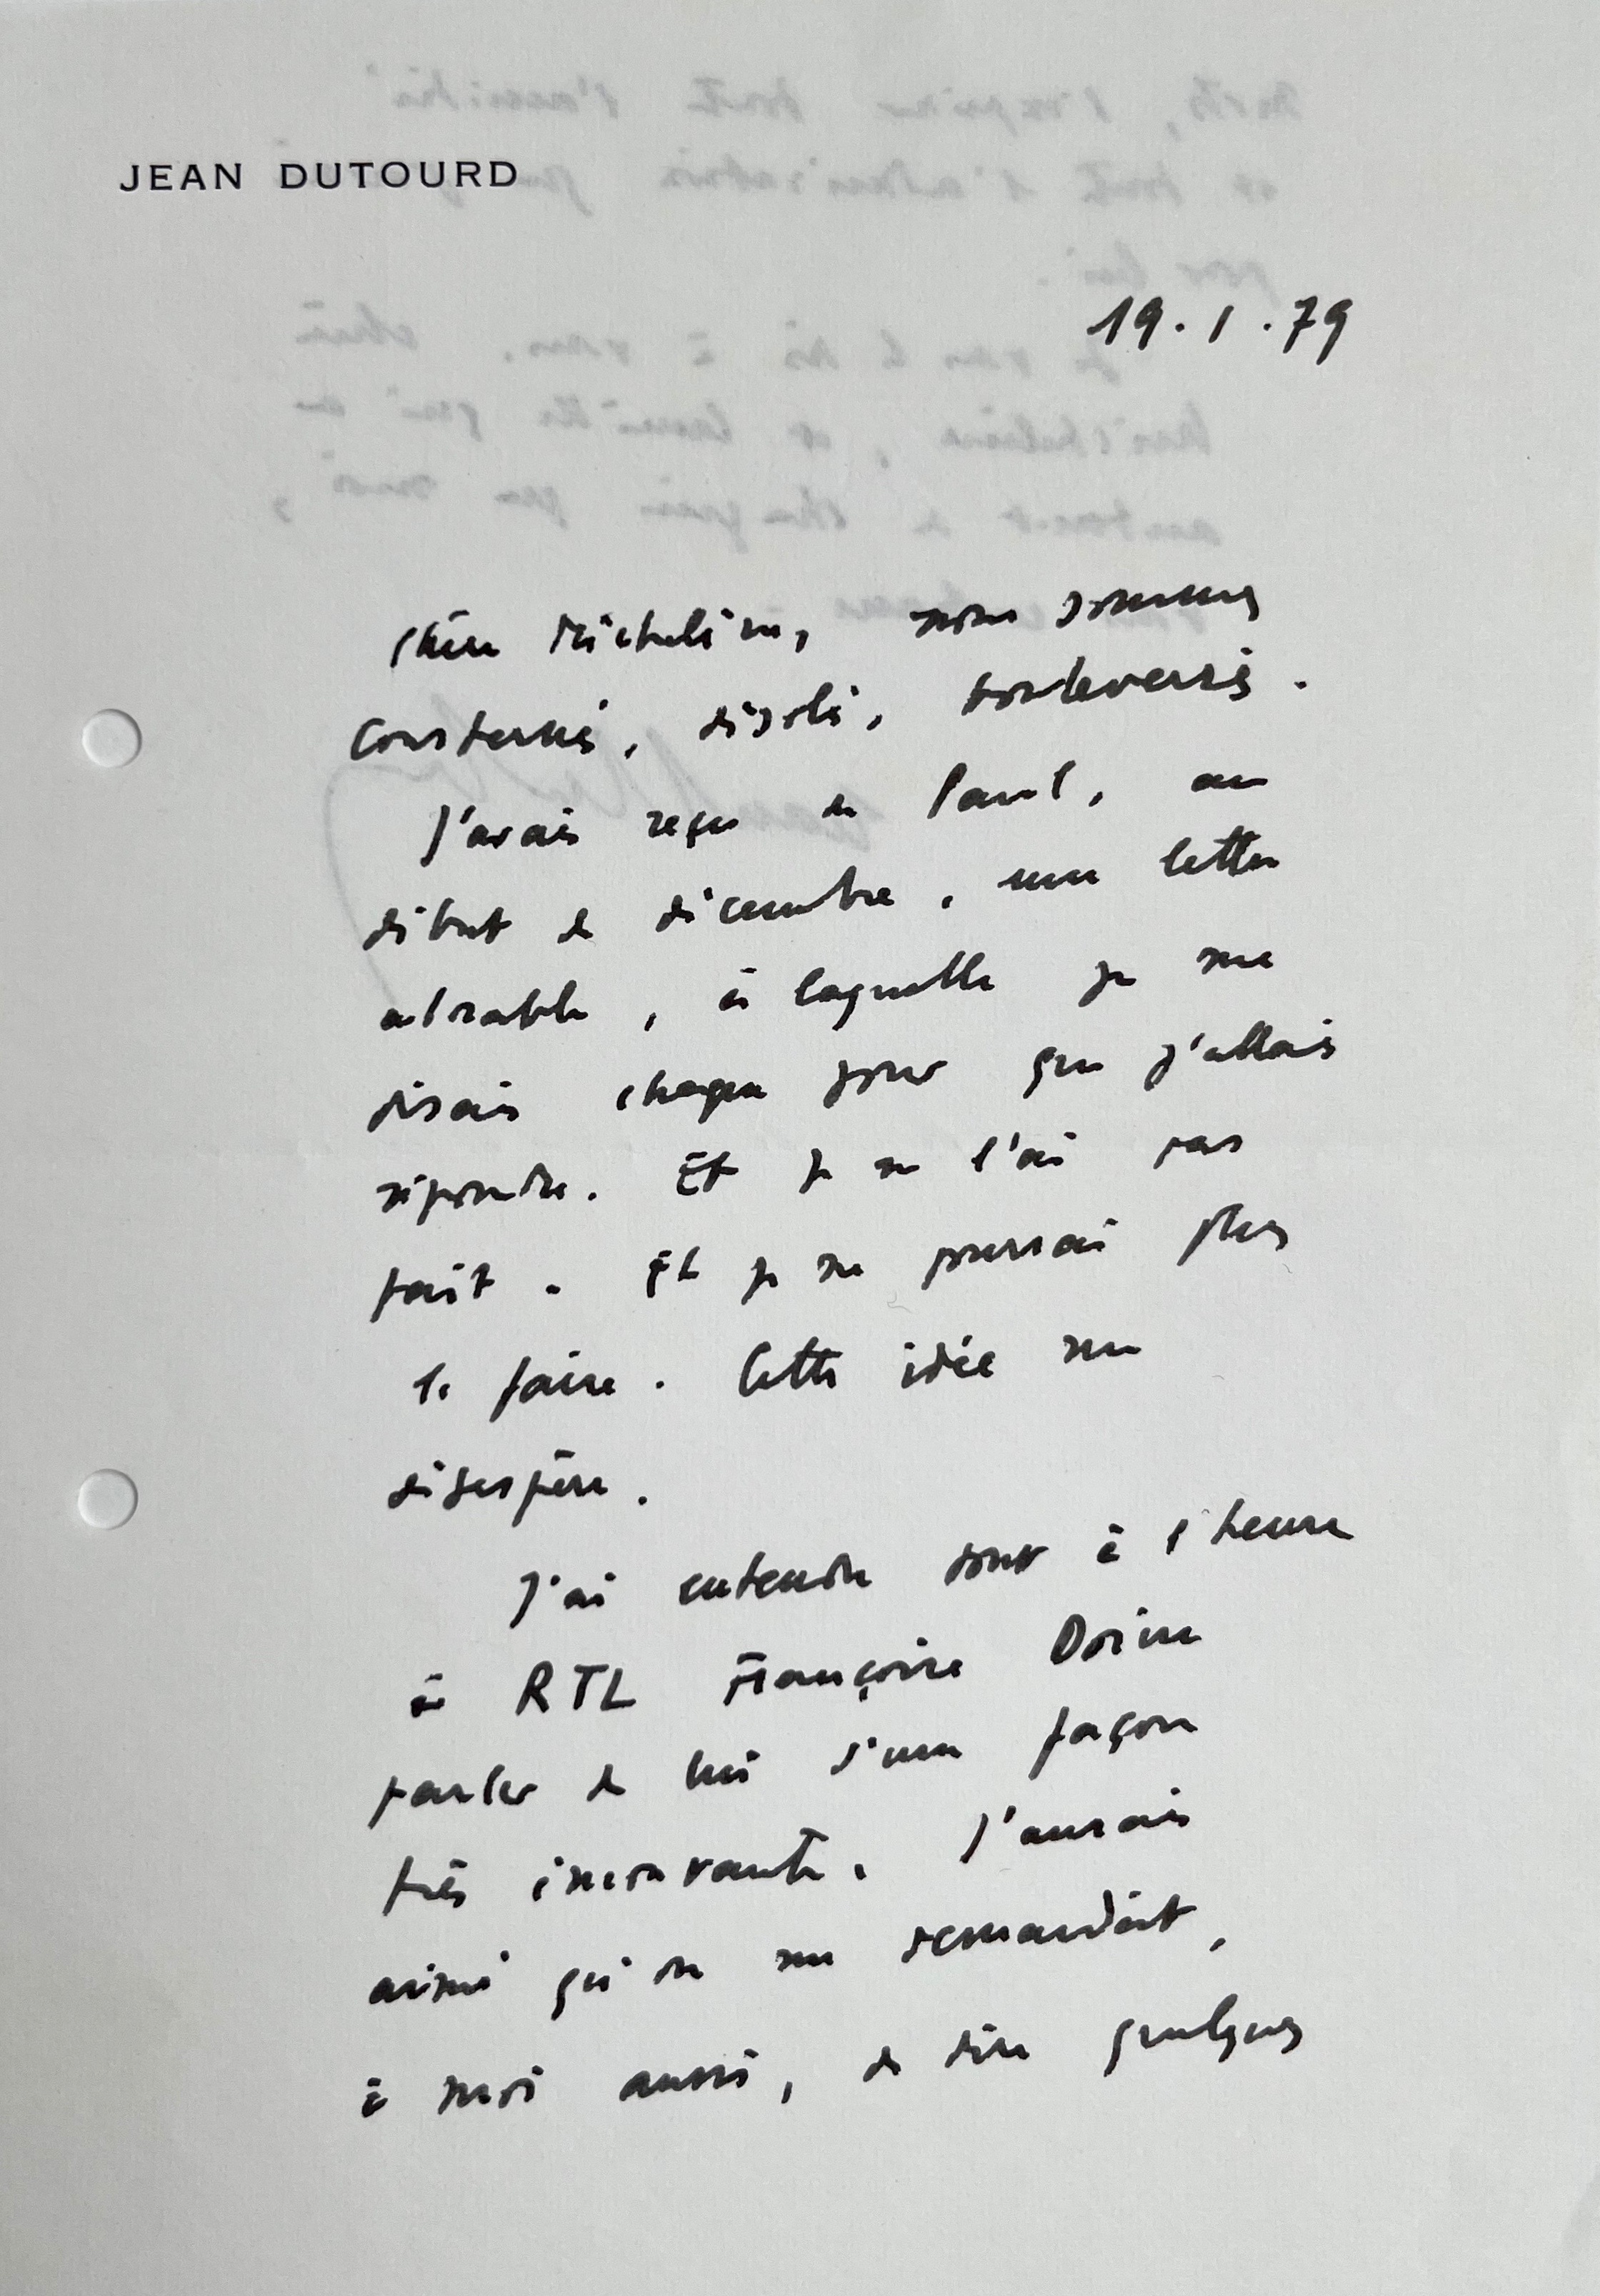 JEAN DUTOURD
19.1.79
Chère Micheline, nous sommes
consternés, désolés, bouleversés.
J'avais reçu de Paul, au
début de décembre, une lettre
adorable, à laquelle je me
disais chaque jour que j'allais
répondre. Et je ne l'ai pas
fait. Et je ne pourrai plus
le faire. Cette idée me
désespère.
J'ai entendu tout à l'heure
à RTL Françoise Dorin
parler de lui d'une façon
très émouvante. J'aurais
aimé qu'on me demandât,
à moi aussi, de dire quelques